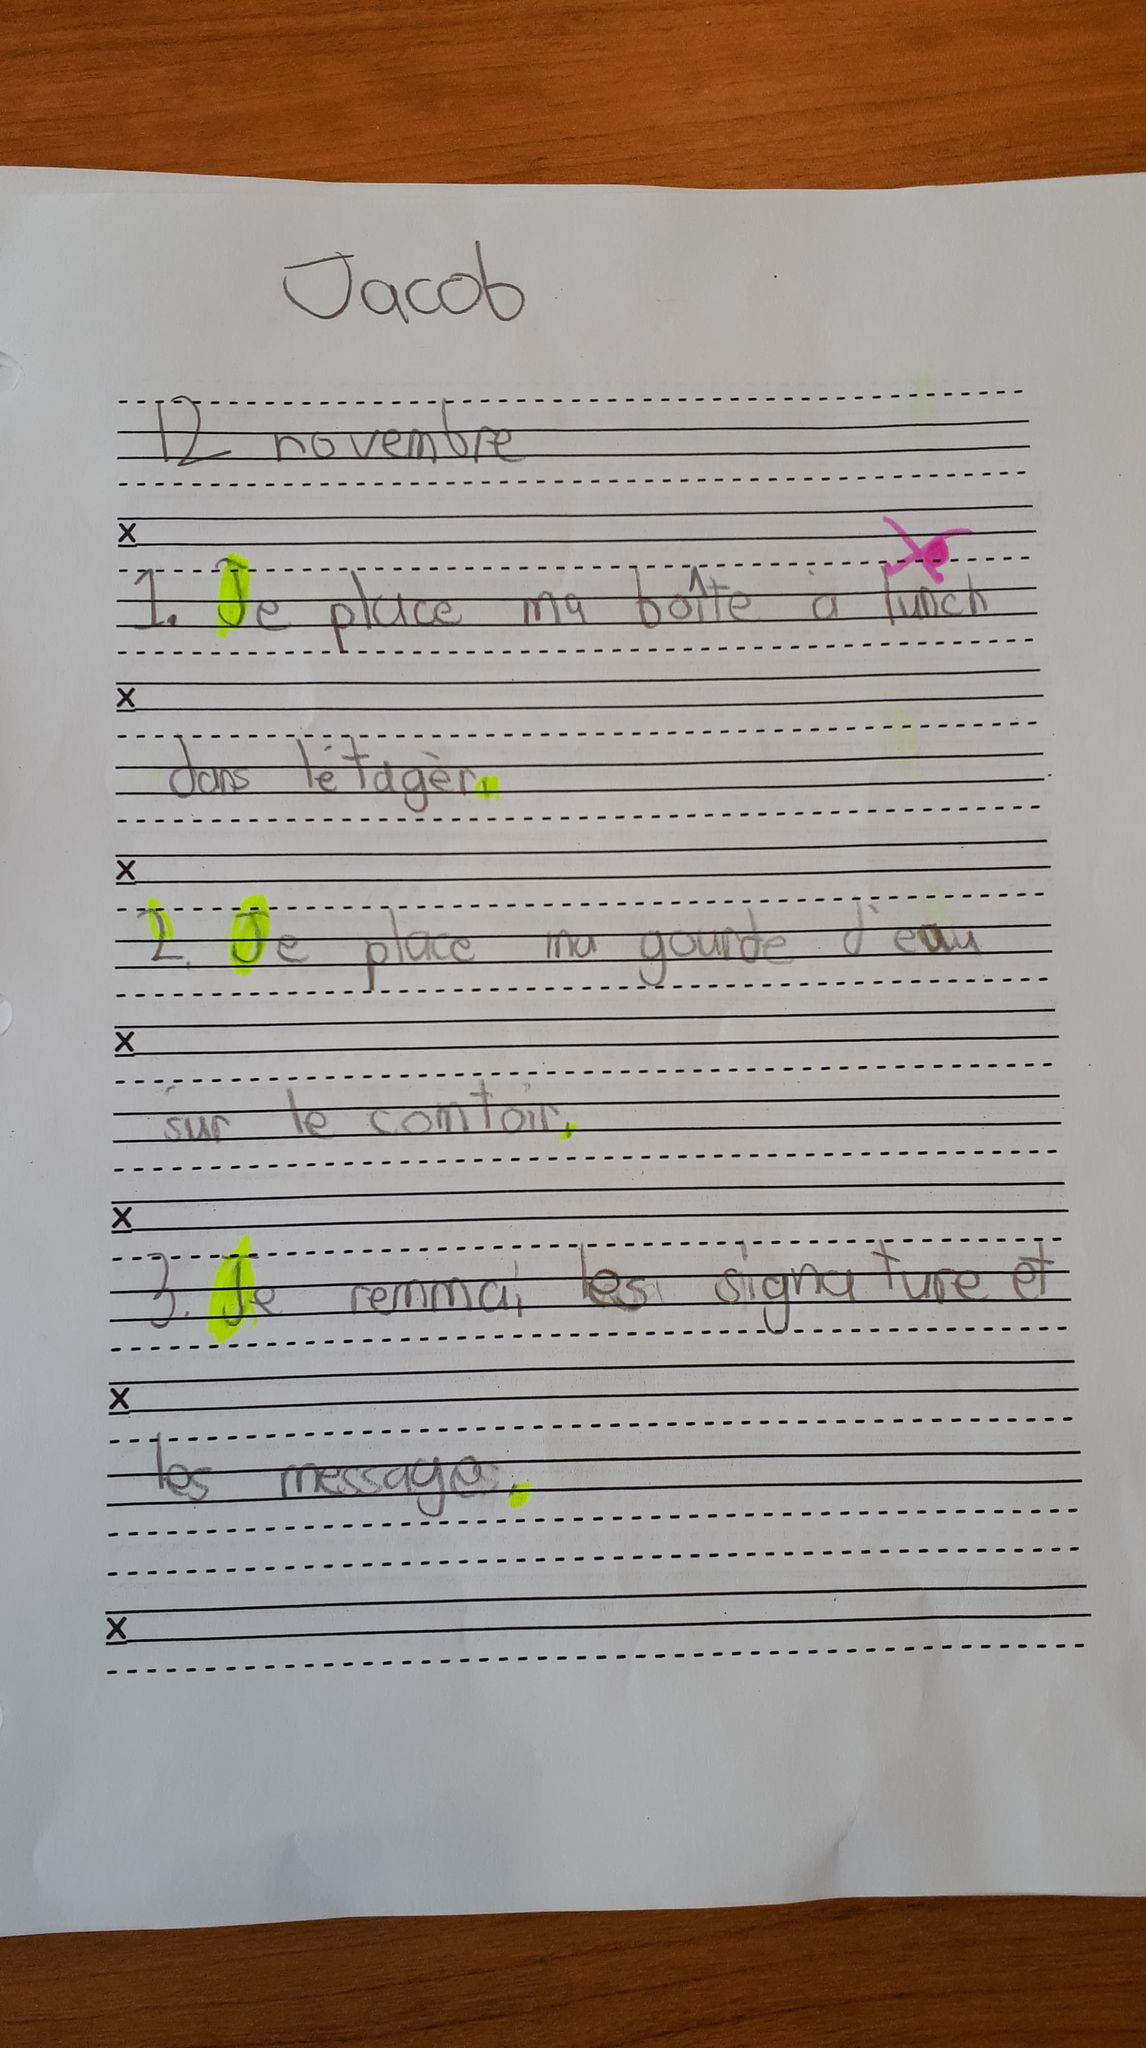 Jacob
12 novembre
x
1. Je place ma boîte à lunch
x
dans l'étagèr.
x
2. Je place ma gourde d'eau
x
sur le comtoir.
x
3. Je remmai les signature et
x
les messages.
x